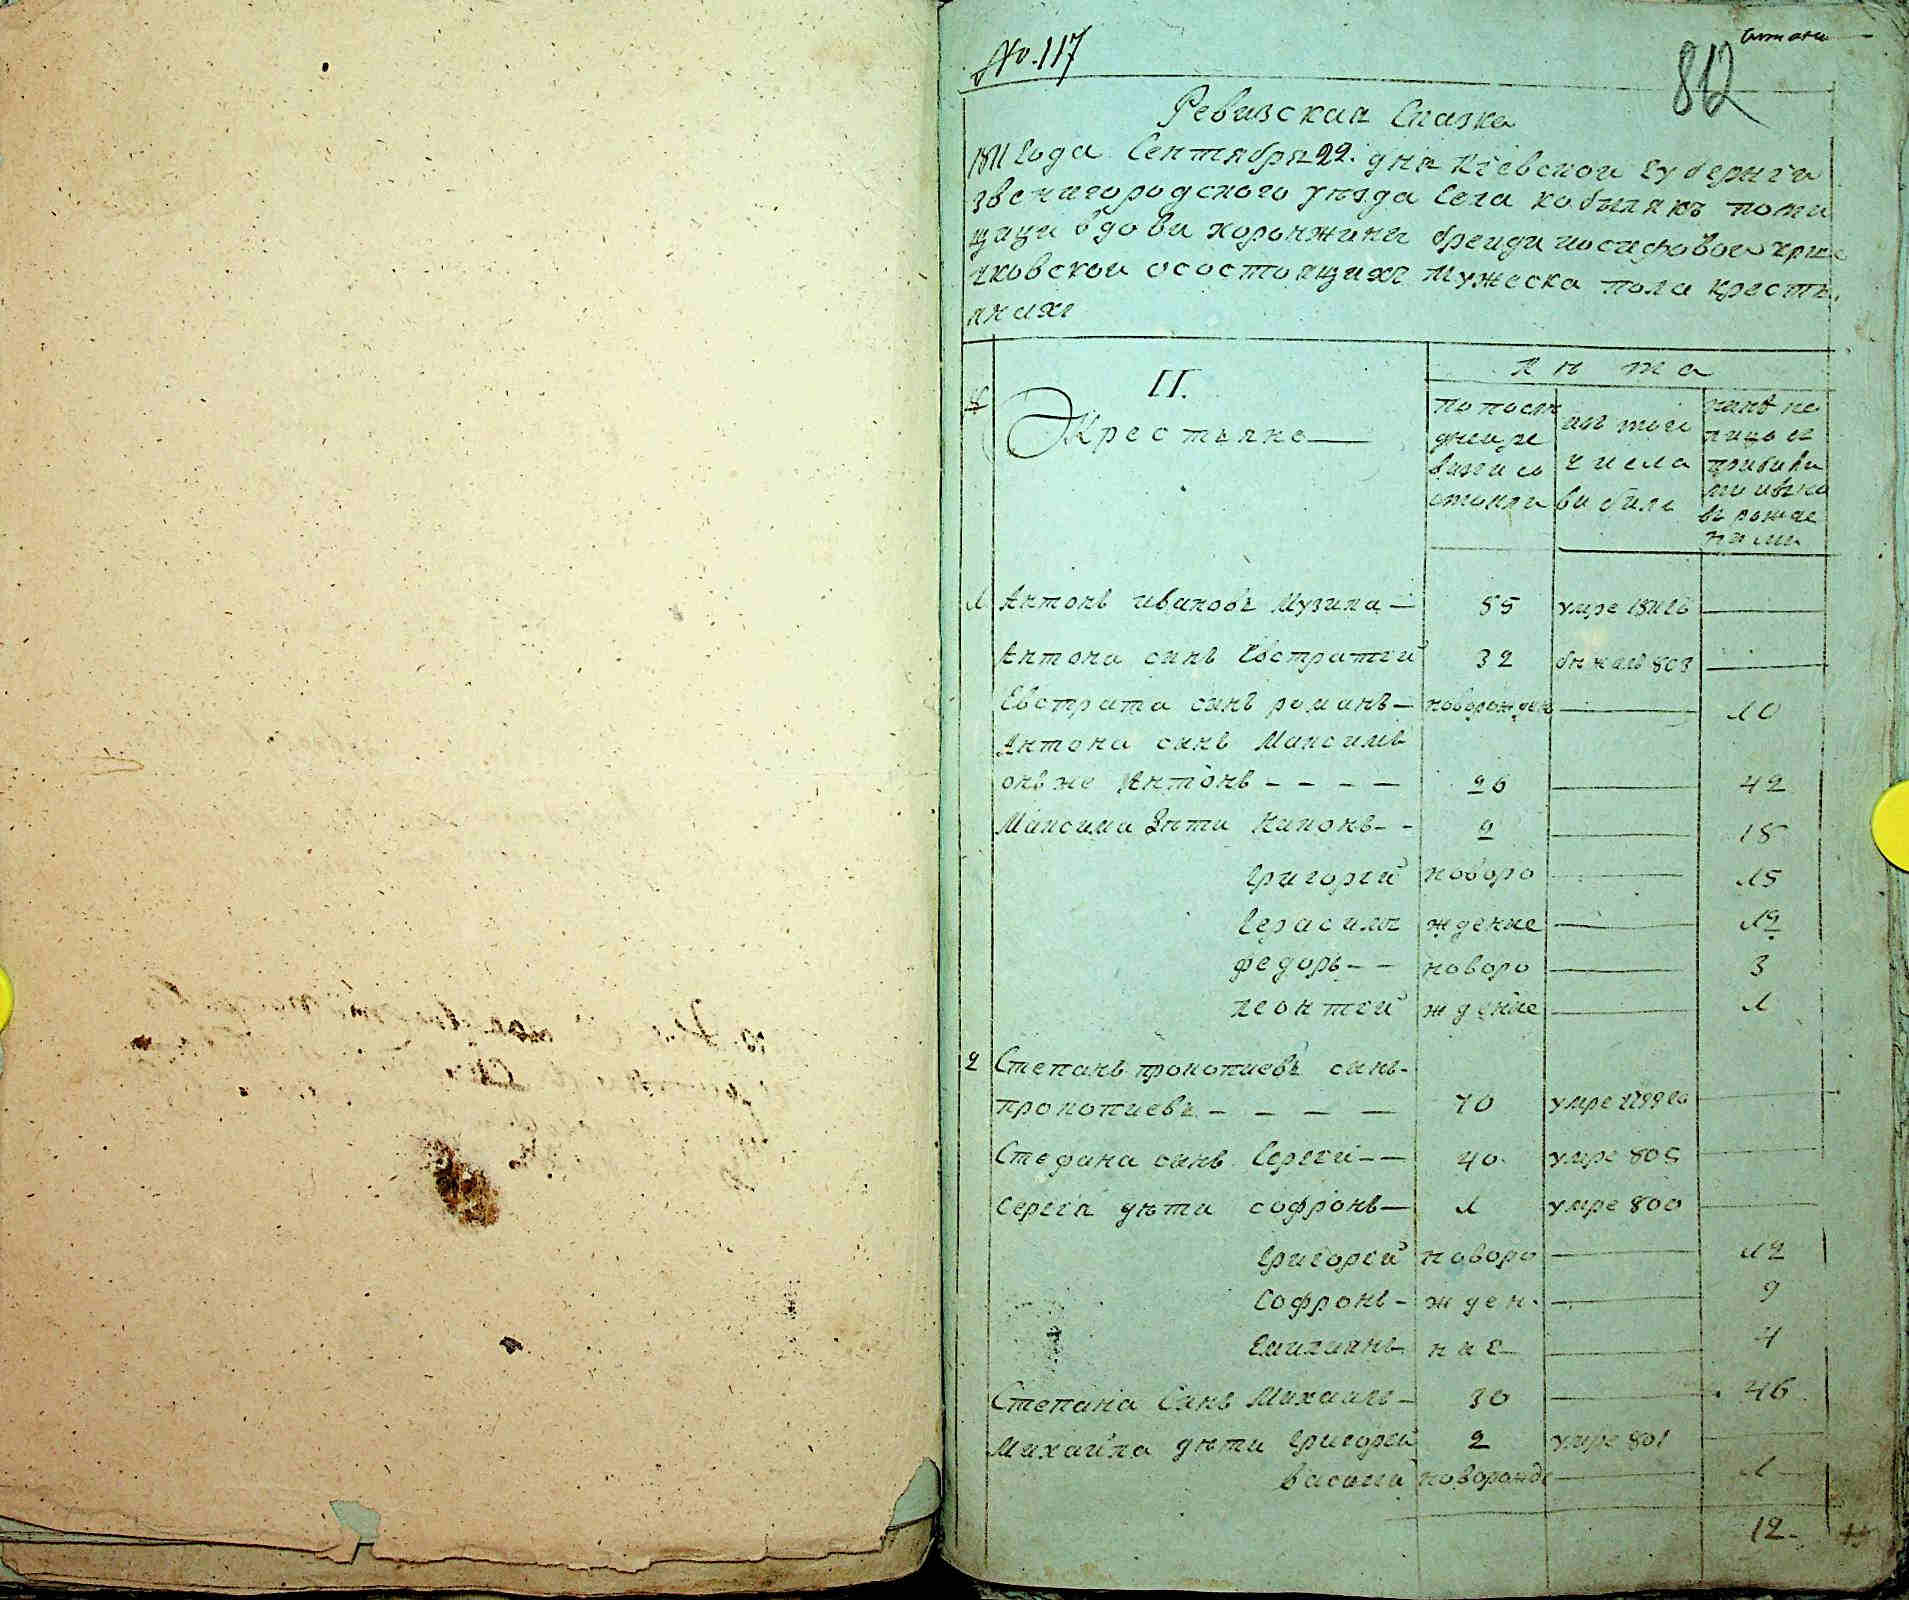 No. 117
812
Ревизская Сказка
1811 Года Сентября 22. дня Киевской Губернии
Звенигородского уезда Села кобылякъ поме
щици вдови хоронжины бригиди иосифовой
чковской осостоящихъ мужеска пола кресть
янихъ
№
II.
Крестьяне
лѣта
по послѣ
дней ре
визіи со
стояли
изъ того
числа
вибило
нынѣ на
лицо съ
прибили
ми и вно
въ рожде
ными
1 Антонъ ивановъ Музика — 85 умре 1811го —
Антона синъ Евстратий 32 бежалъ 803 —
Евстрата синъ романъ — новорожден — 10
Антона синъ Максимъ
онъ же Антонъ - - - - 26 — 42
Максима Дѣти Никонъ - - 2 — 18
Григорій новоро — 15
Герасимъ ждение — 12
федоръ - - новоро — 3
леонтій ждение — 1
2 Степанъ прокопиевъ синъ -
прокопиевъ - - - - 70 умре 1799го —
Стефана синъ Сергей - - 40 умре 805 —
Сергія дѣти софронъ — 1 умре 800 —
Григорей новоро — 12
Софронъ - жден - — 9
Емилианъ ние — 4
Степана Синъ Михаилъ - 30 — 46
Михайла дѣти Григорей 2 умре 801 —
василій новорожде — 1
12.